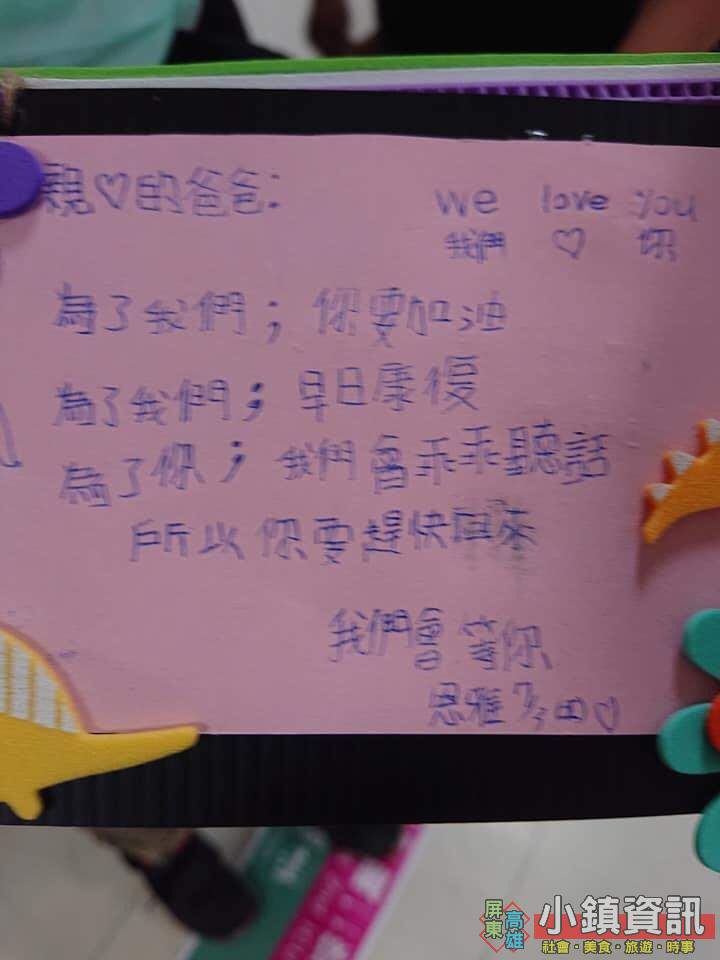 親♡的爸爸:
we love you
我們 ♡ 你
為了我們;你要加油
為了我們;早日康復
為了你;我們會乖乖聽話
所以你要趕快回來
我們會等你
恩雅 7/3 ♡
屏東 高雄
小鎮資訊
社會·美食·旅遊·時事